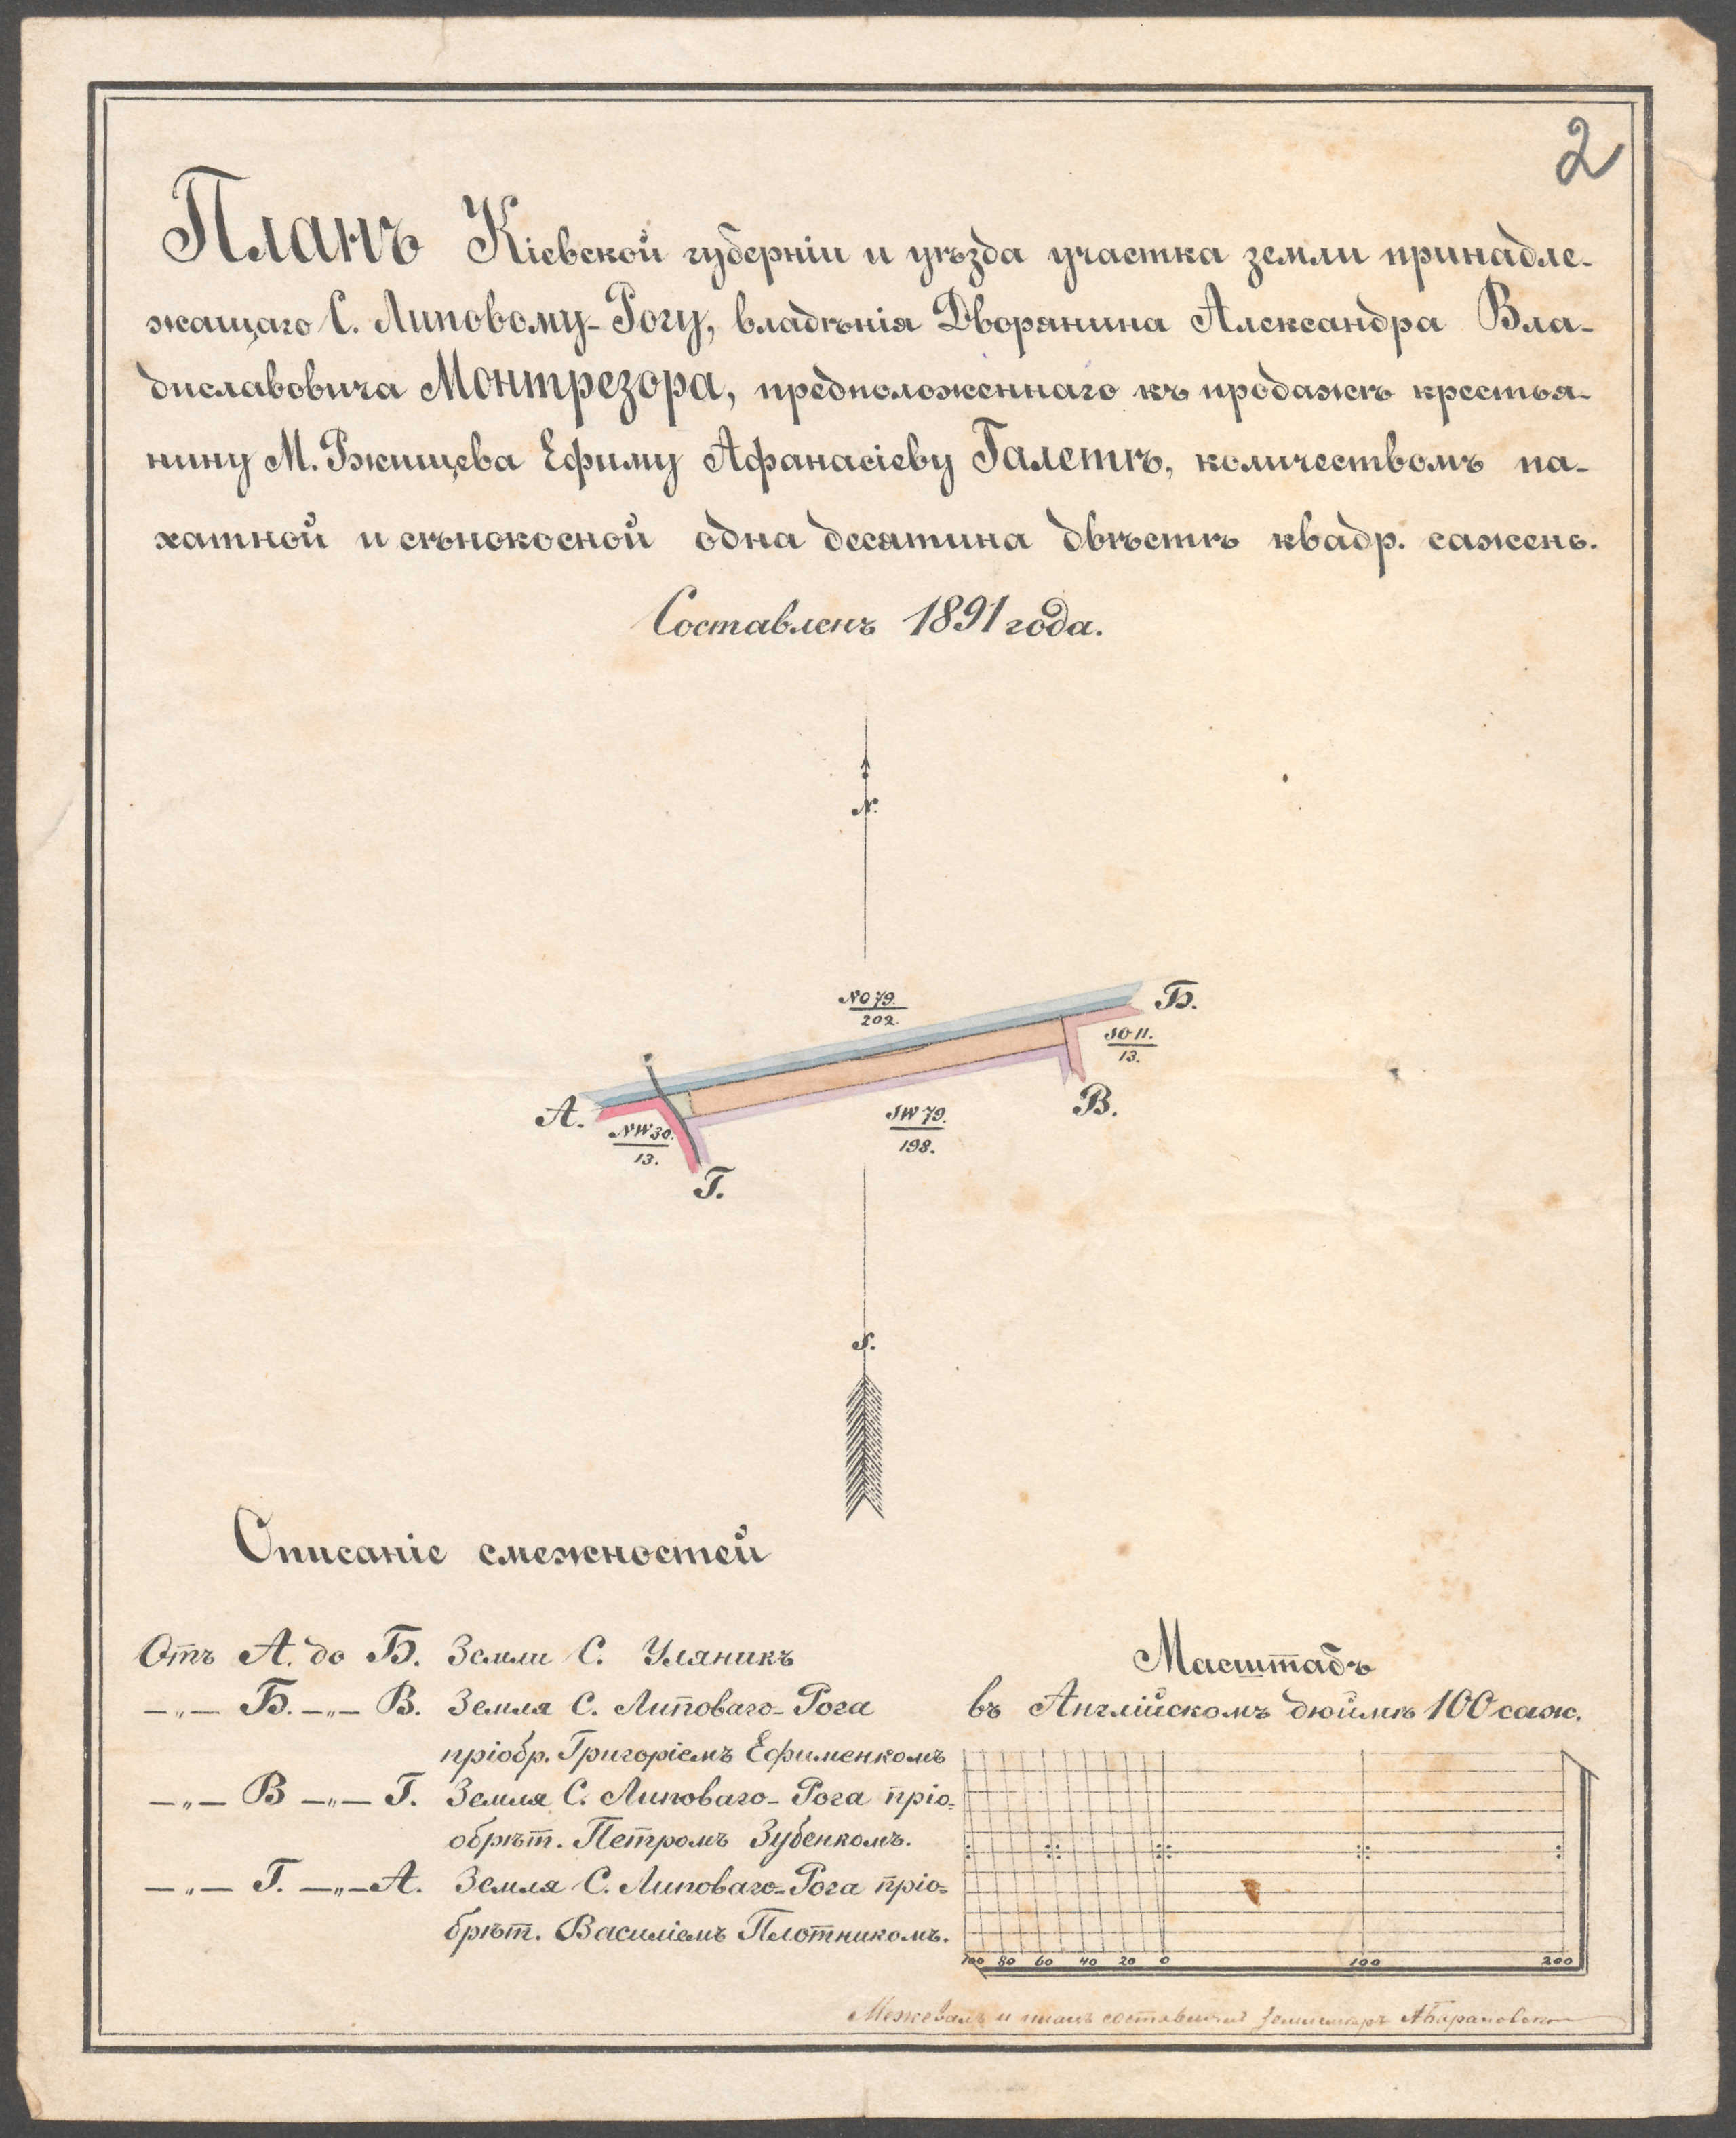 2
Планъ Кіевской губерніи и уѣзда участка земли принадле-
жащаго С. Липовому-Рогу, владѣнія Дворянина Александра Вла-
диславовича Монтрезора, предположеннаго къ продажѣ крестья-
нину М. Ржищева Ефиму Афанасіеву Галетѣ, количествомъ па-
хатной и сѣнокосной одна десятина двѣстѣ квадр. сажень.
Составленъ 1891 года.
N.
NO 79.
202.
Б.
SO 11.
13.
А.
В.
SW 79.
198.
NW 30.
13.
Г.
S.
Описаніе смежностей
Отъ А. до Б. Земли С. Уляникъ
—„— Б. —„— В. Земля С. Липоваго-Рога
пріобр. Григоріемъ Ефименкомъ
—„— В —„— Г. Земля С. Липоваго-Рога пріо-
обрѣт. Петромъ Зубенкомъ.
—„— Г. —„— А. Земля С. Липоваго-Рога пріо-
брѣт. Василіемъ Плотникомъ.
Масштабъ
въ Англійскомъ дюймѣ 100 саж.
100 80 60 40 20 0 100 200
Межевалъ и планъ составилъ землемѣръ